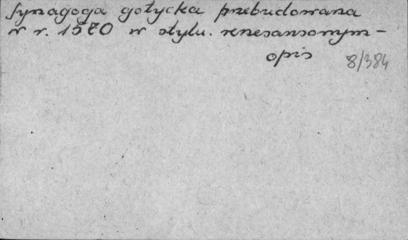 Synagoga gotycka przebudowana
w r. 1570 w stylu. renesansowym –
opis
8/384